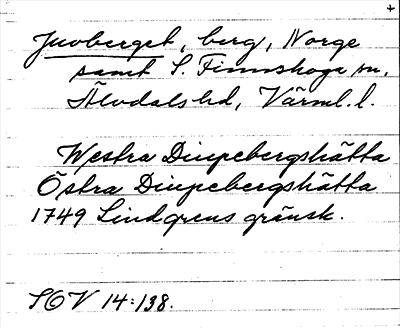 Juvberget, berg, Norge
samt S. Finnskoga sn,
Älvdals hd, Värml. l.
Westra Diupebergshätta
Östra Diupebergshätta
1749 Lindgrens gränsk.
SOV 14:138.